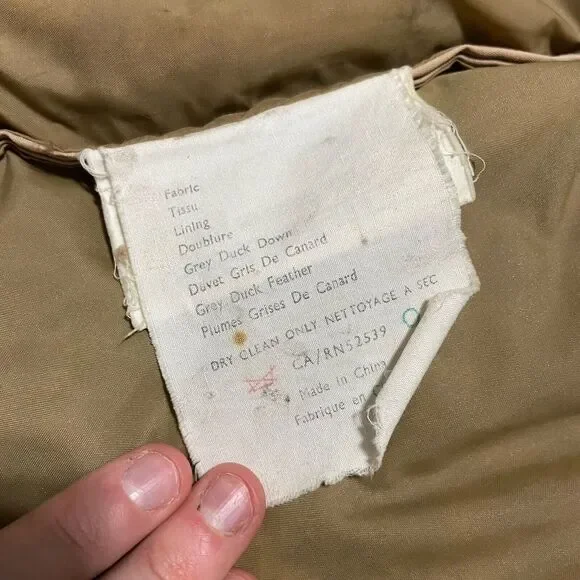 Fabric
Tissu
Lining
Doublure
Grey Duck Down
Duvet Gris De Canard
Grey Duck Feather
Plumes Grises De Canard
DRY CLEAN ONLY NETTOYAGE A SEC
CA/RN52539
Made in China
Fabrique en